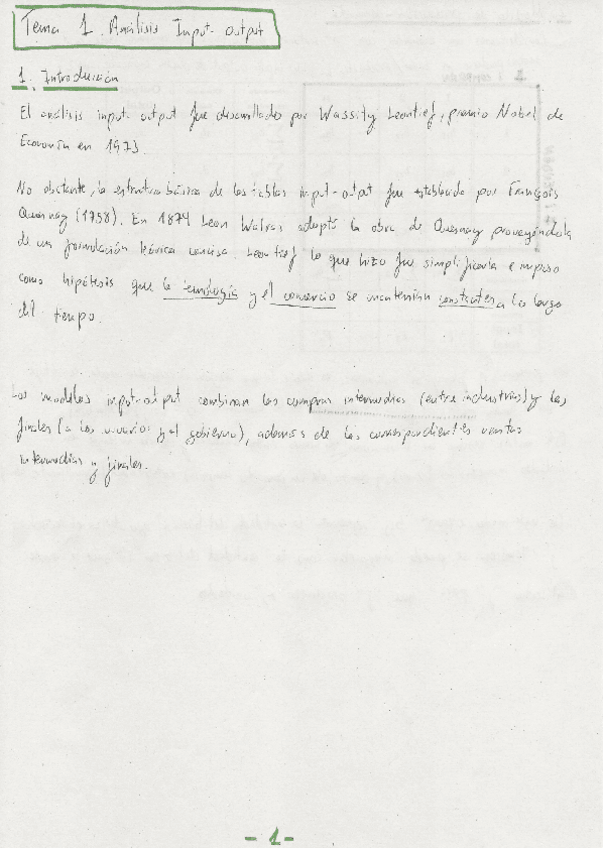 Tema 1. Análisis Input-output
1. Introducción
El análisis input-output fue desarrollado por Wassity Leontief, premio Nobel de
Economía en 1973.
No obstante, la estructura básica de las tablas input-output fue establecida por François
Quesnay (1758). En 1874 Leon Walras adoptó la obra de Quesnay proveyéndola
de una formulación teórica concisa. Leontief lo que hizo fue simplificarla e impuso
como hipótesis que la tecnología y el comercio se mantenían constantes a lo largo
del tiempo.
Los modelos input-output combinan las compras intermedias (entre industrias) y las
finales (a los usuarios y al gobierno), además de las correspondientes ventas
intermedias y finales.
- 1 -